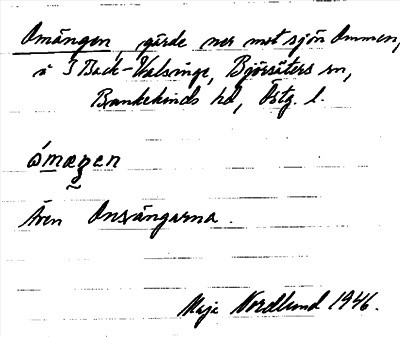 Omängen, gärde ner mot sjön Ommen,
i I Back-Valsinge, Björsäters sn,
Bankekinds hd, Östg. l.
ómæŋen
Även Onsängarna.
Maja Nordlund 1946.